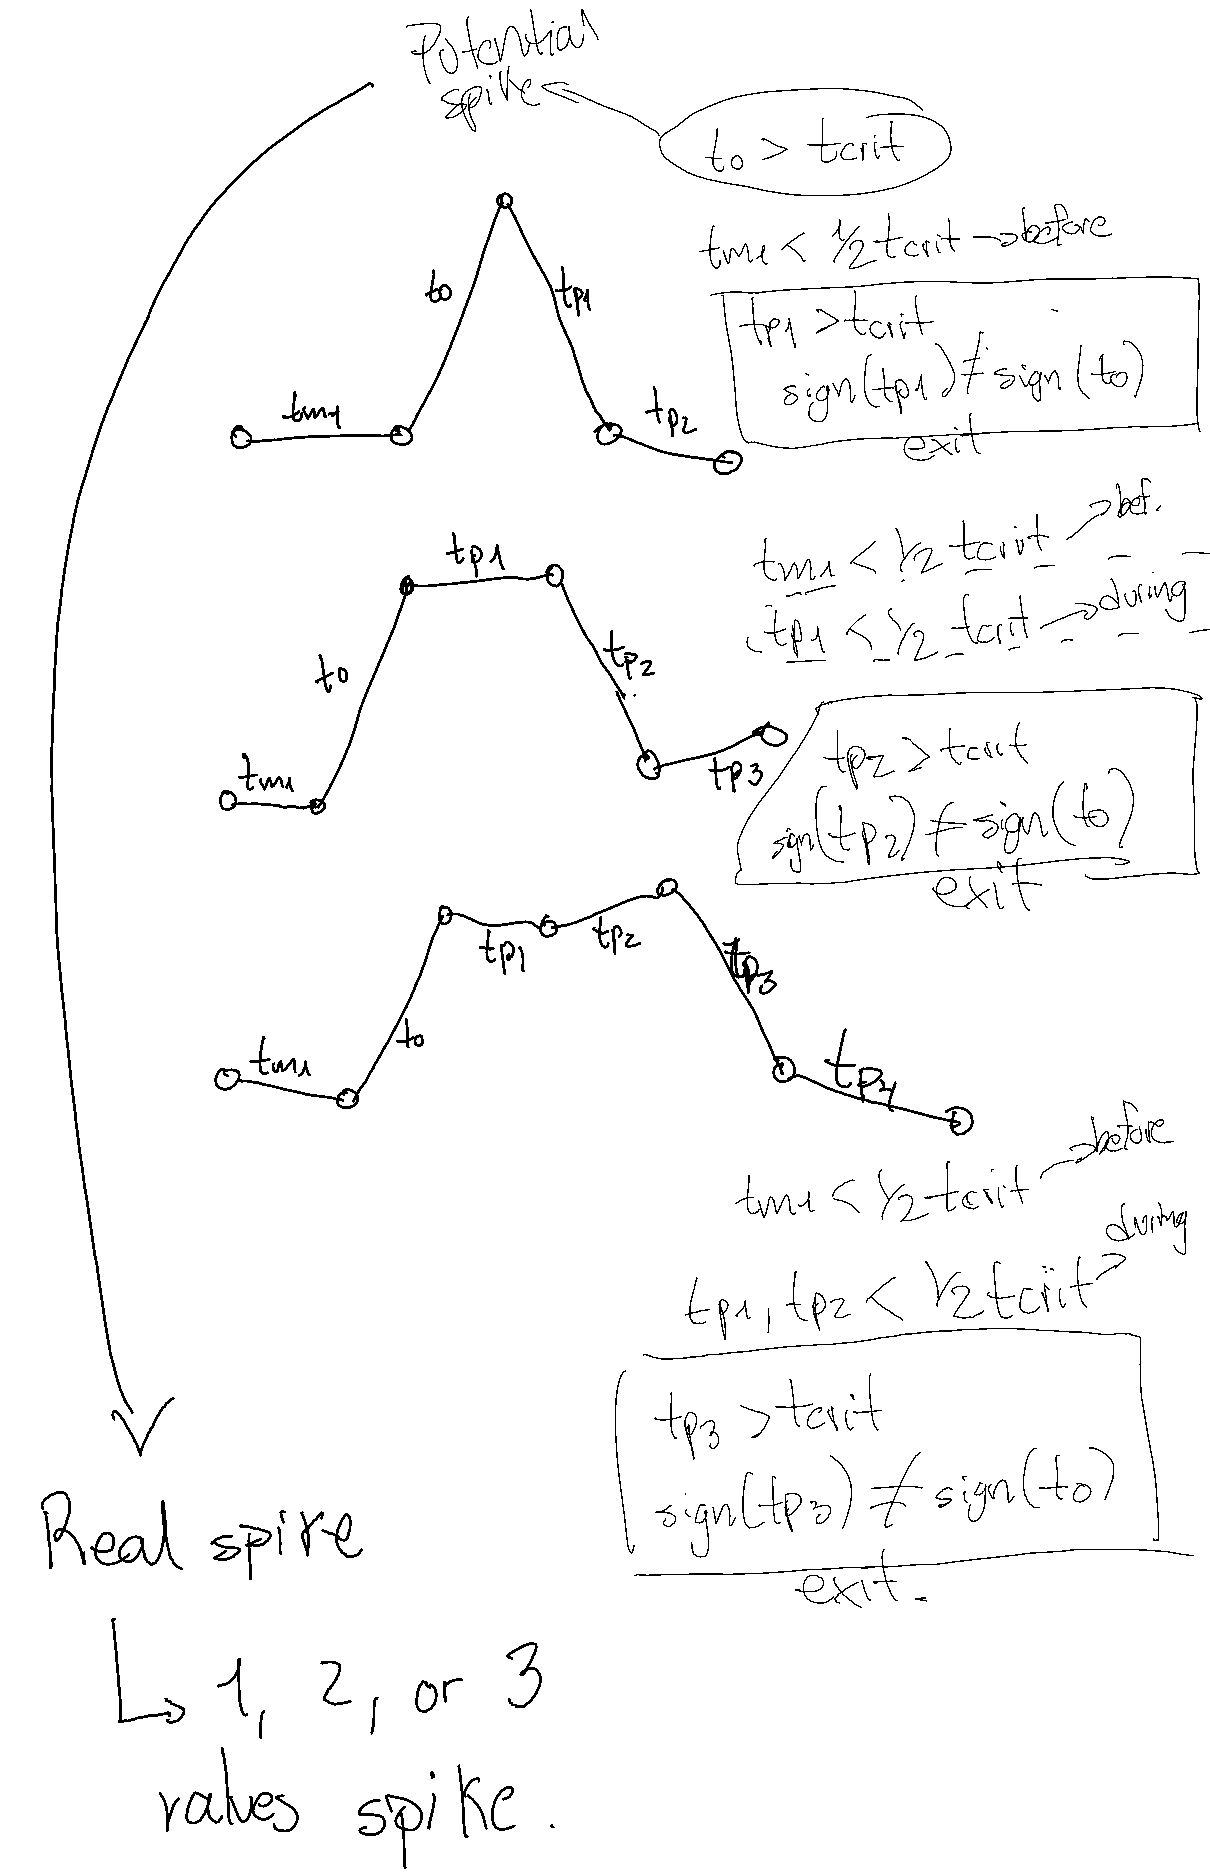 Potential
spike
to > tcrit
tm1 < 1/2 tcrit → before
tp1 > tcrit
sign(tp1) ≠ sign(to)
exit
to
tp1
tm1
tp2
tm1 < 1/2 tcrit → bef.
tp1 < 1/2 tcrit → during
tp1
to
tp2
tm1
tp3
tp2 > tcrit
sign(tp2) ≠ sign(to)
exit
tp1
tp2
tp3
tm1
to
tp4
tm1 < 1/2 tcrit → before
tp1, tp2 < 1/2 tcrit → during
tp3 > tcrit
sign(tp3) ≠ sign(to)
exit.
Real spike
↳ 1, 2, or 3
values spike.